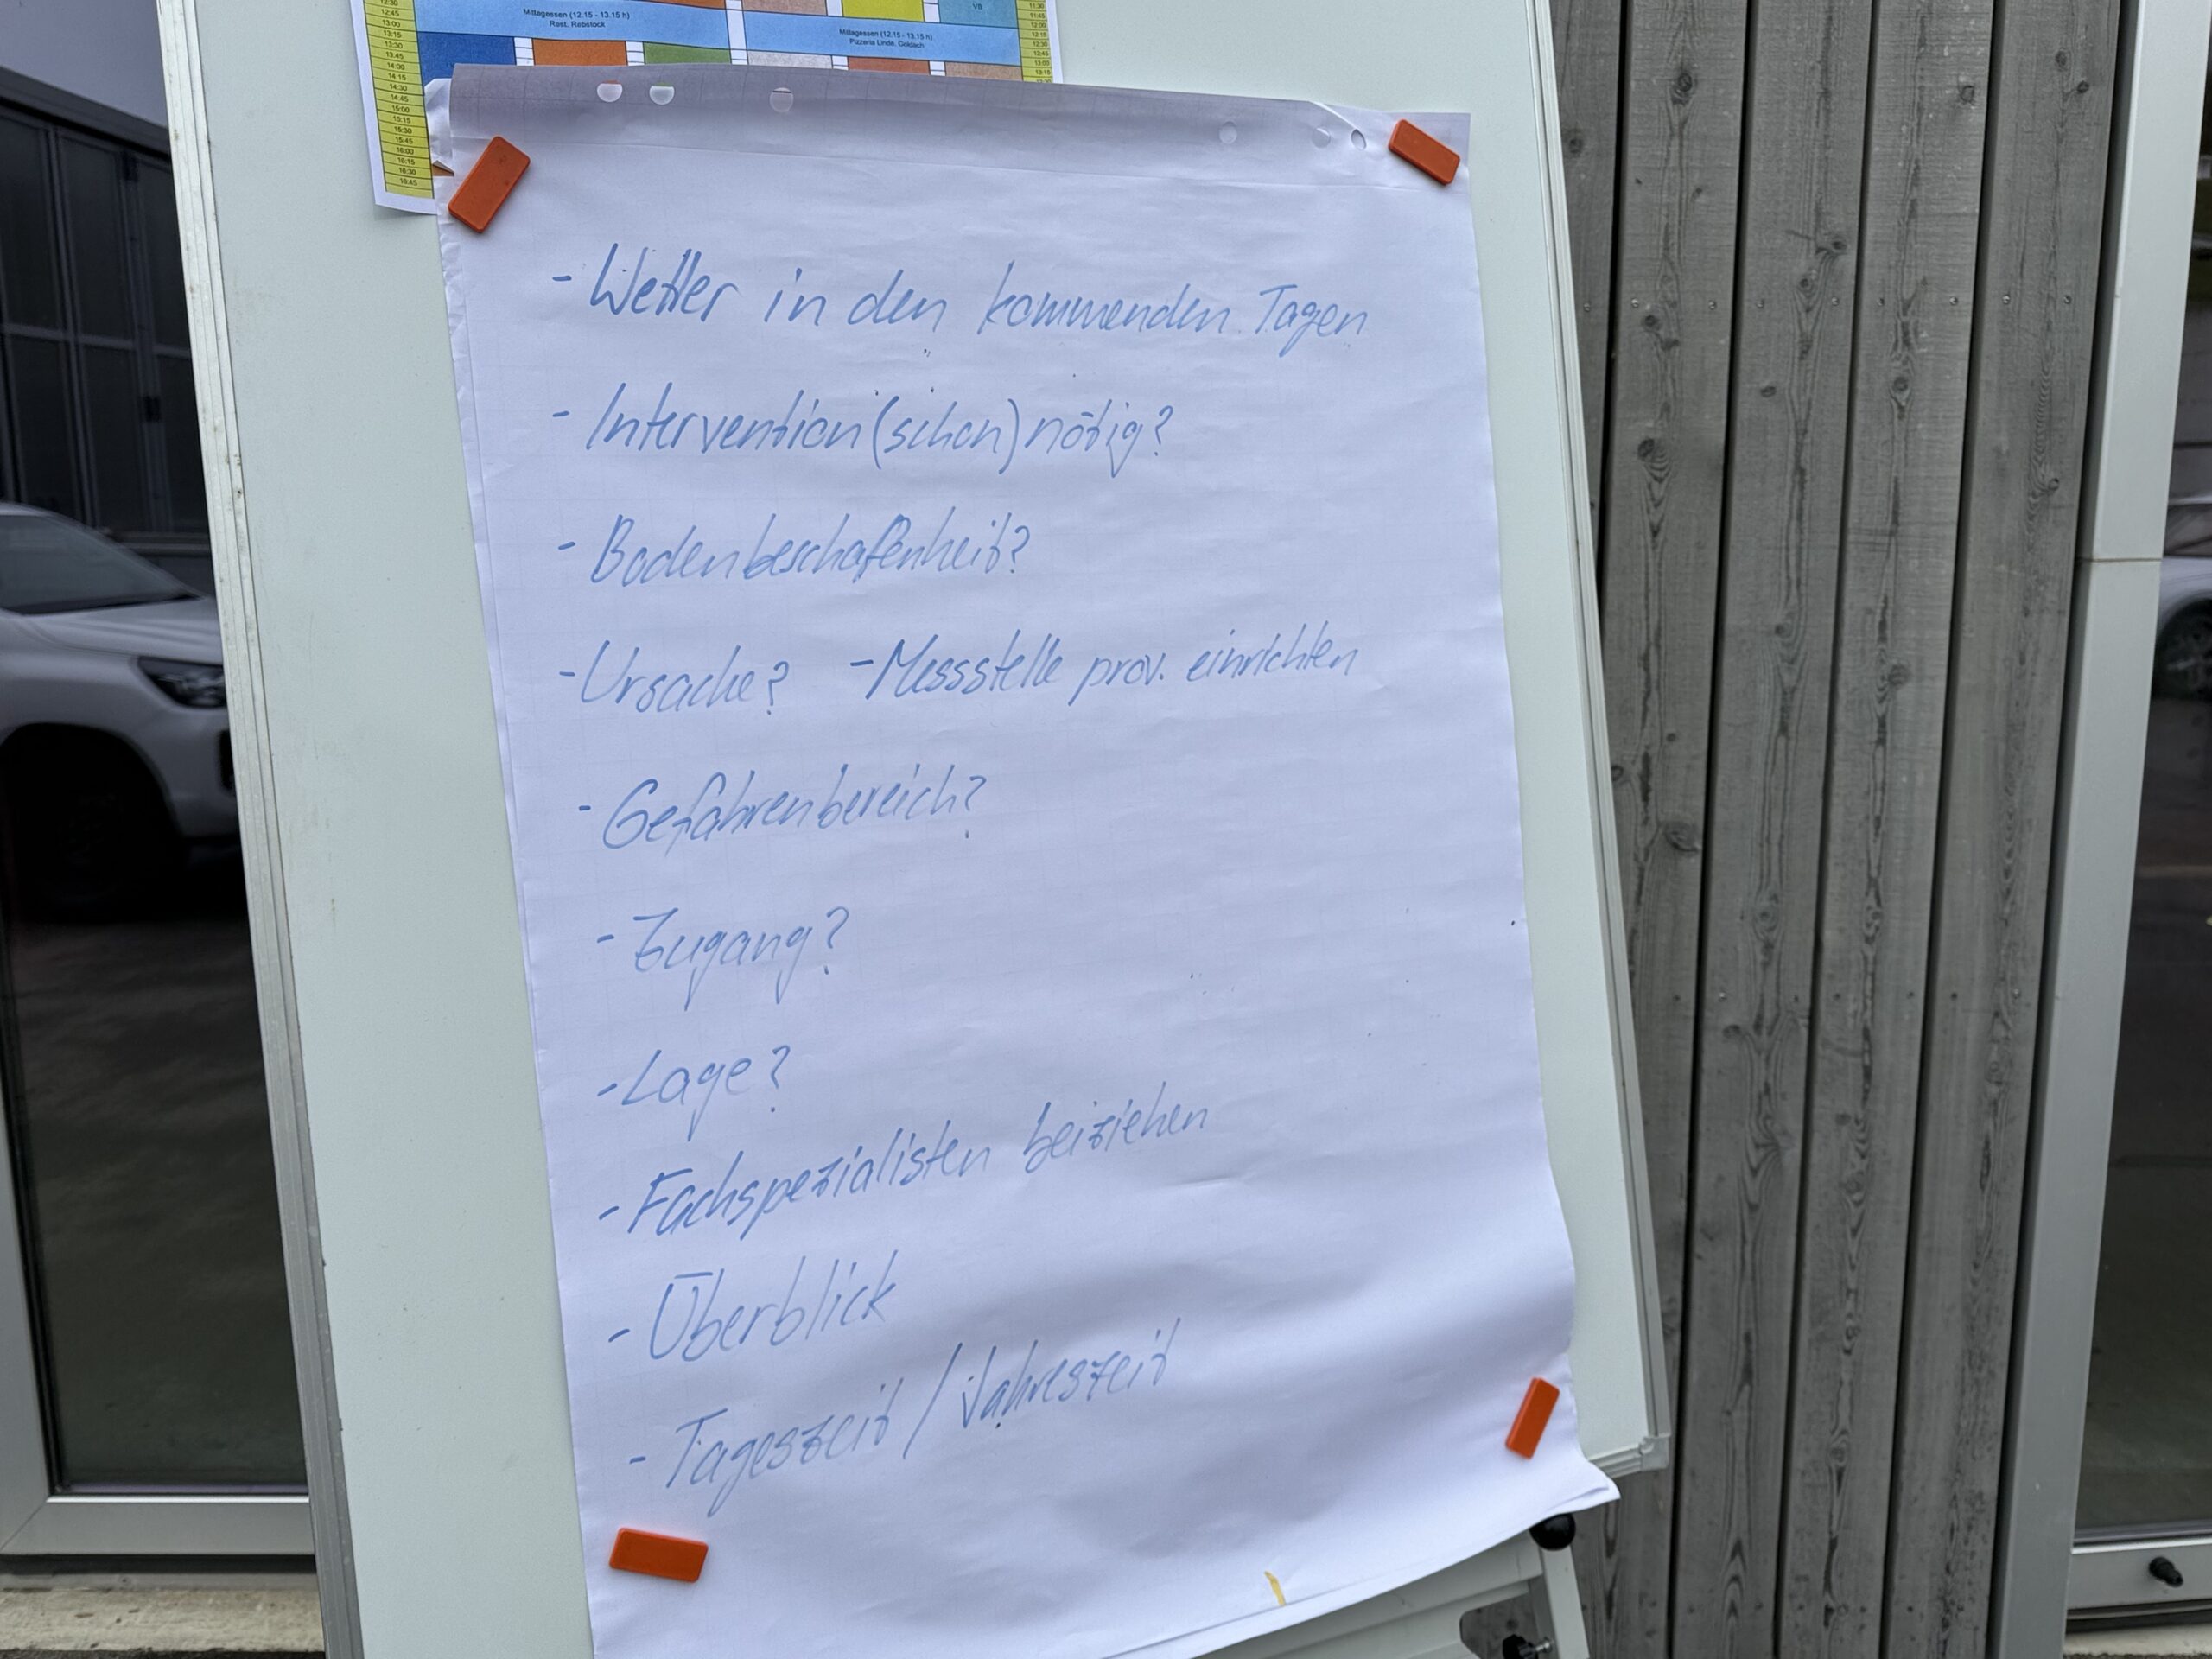 12:30
12:45
13:00
13:15
13:30
13:45
14:00
14:15
14:30
14:45
15:00
15:15
15:30
15:45
16:00
16:15
16:30
16:45
Mittagessen (12.15 - 13.15 h)
Rest. Rebstock
Mittagessen (12.15 - 13.15 h)
Pizzeria Linde, Goldach
VB
11:30
11:45
12:00
12:15
12:30
12:45
13:00
13:15
- Wetter in den kommenden Tagen
- Intervention (schon) nötig?
- Bodenbeschafenheit?
- Ursache? - Messstelle prov. einrichten
- Gefahrenbereich?
- Zugang?
- Lage?
- Fachspezialisten beiziehen
- Überblick
- Tageszeit / Jahreszeit